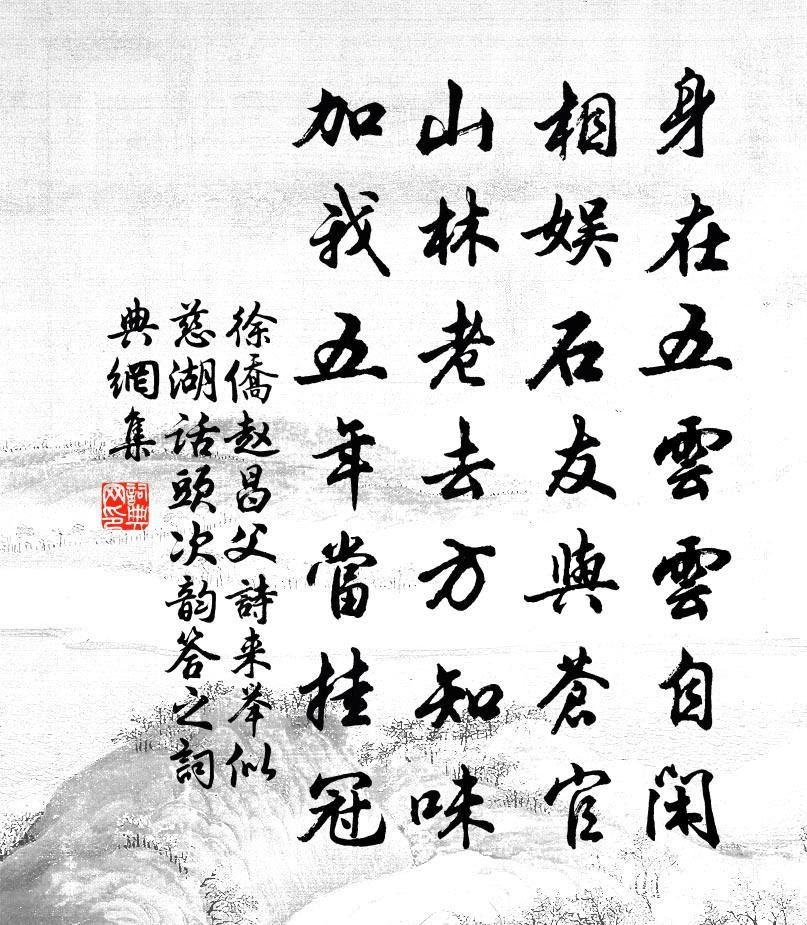 身在五雲雲自閑
相娛石友與蒼官
山林老去方知味
加我五年當挂冠
徐僑趙昌父詩来举似
慈湖话頭次韵答之詞
典網集
詞典網印